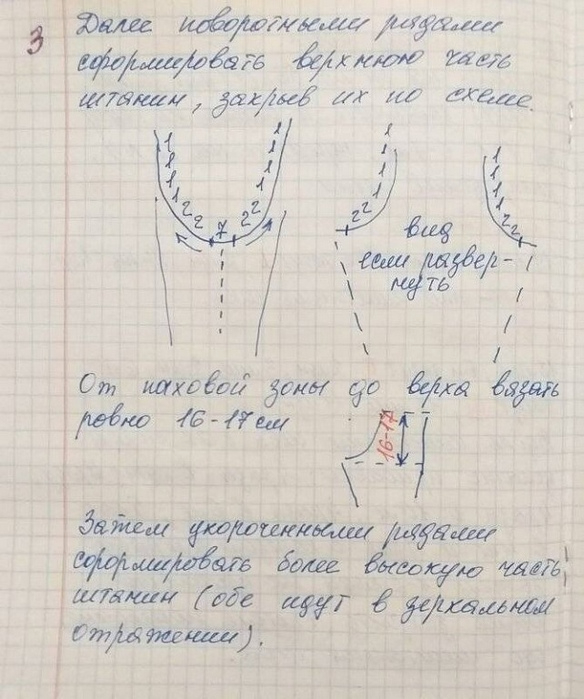 3
Далее поворотными рядами
сформировать верхнюю часть
штанин, закрыв их по схеме.
1 1 1 1 2 2 7 2 2 1 1 1 1
2 2 1 1 1 1
1 1 1 1 2 2
вид
если развер-
нуть
От паховой зоны до верха вязать
ровно 16-17 см
16-17
Затем укороченными рядами
сформировать более высокую часть
штанин (обе идут в зеркальном
отражении).